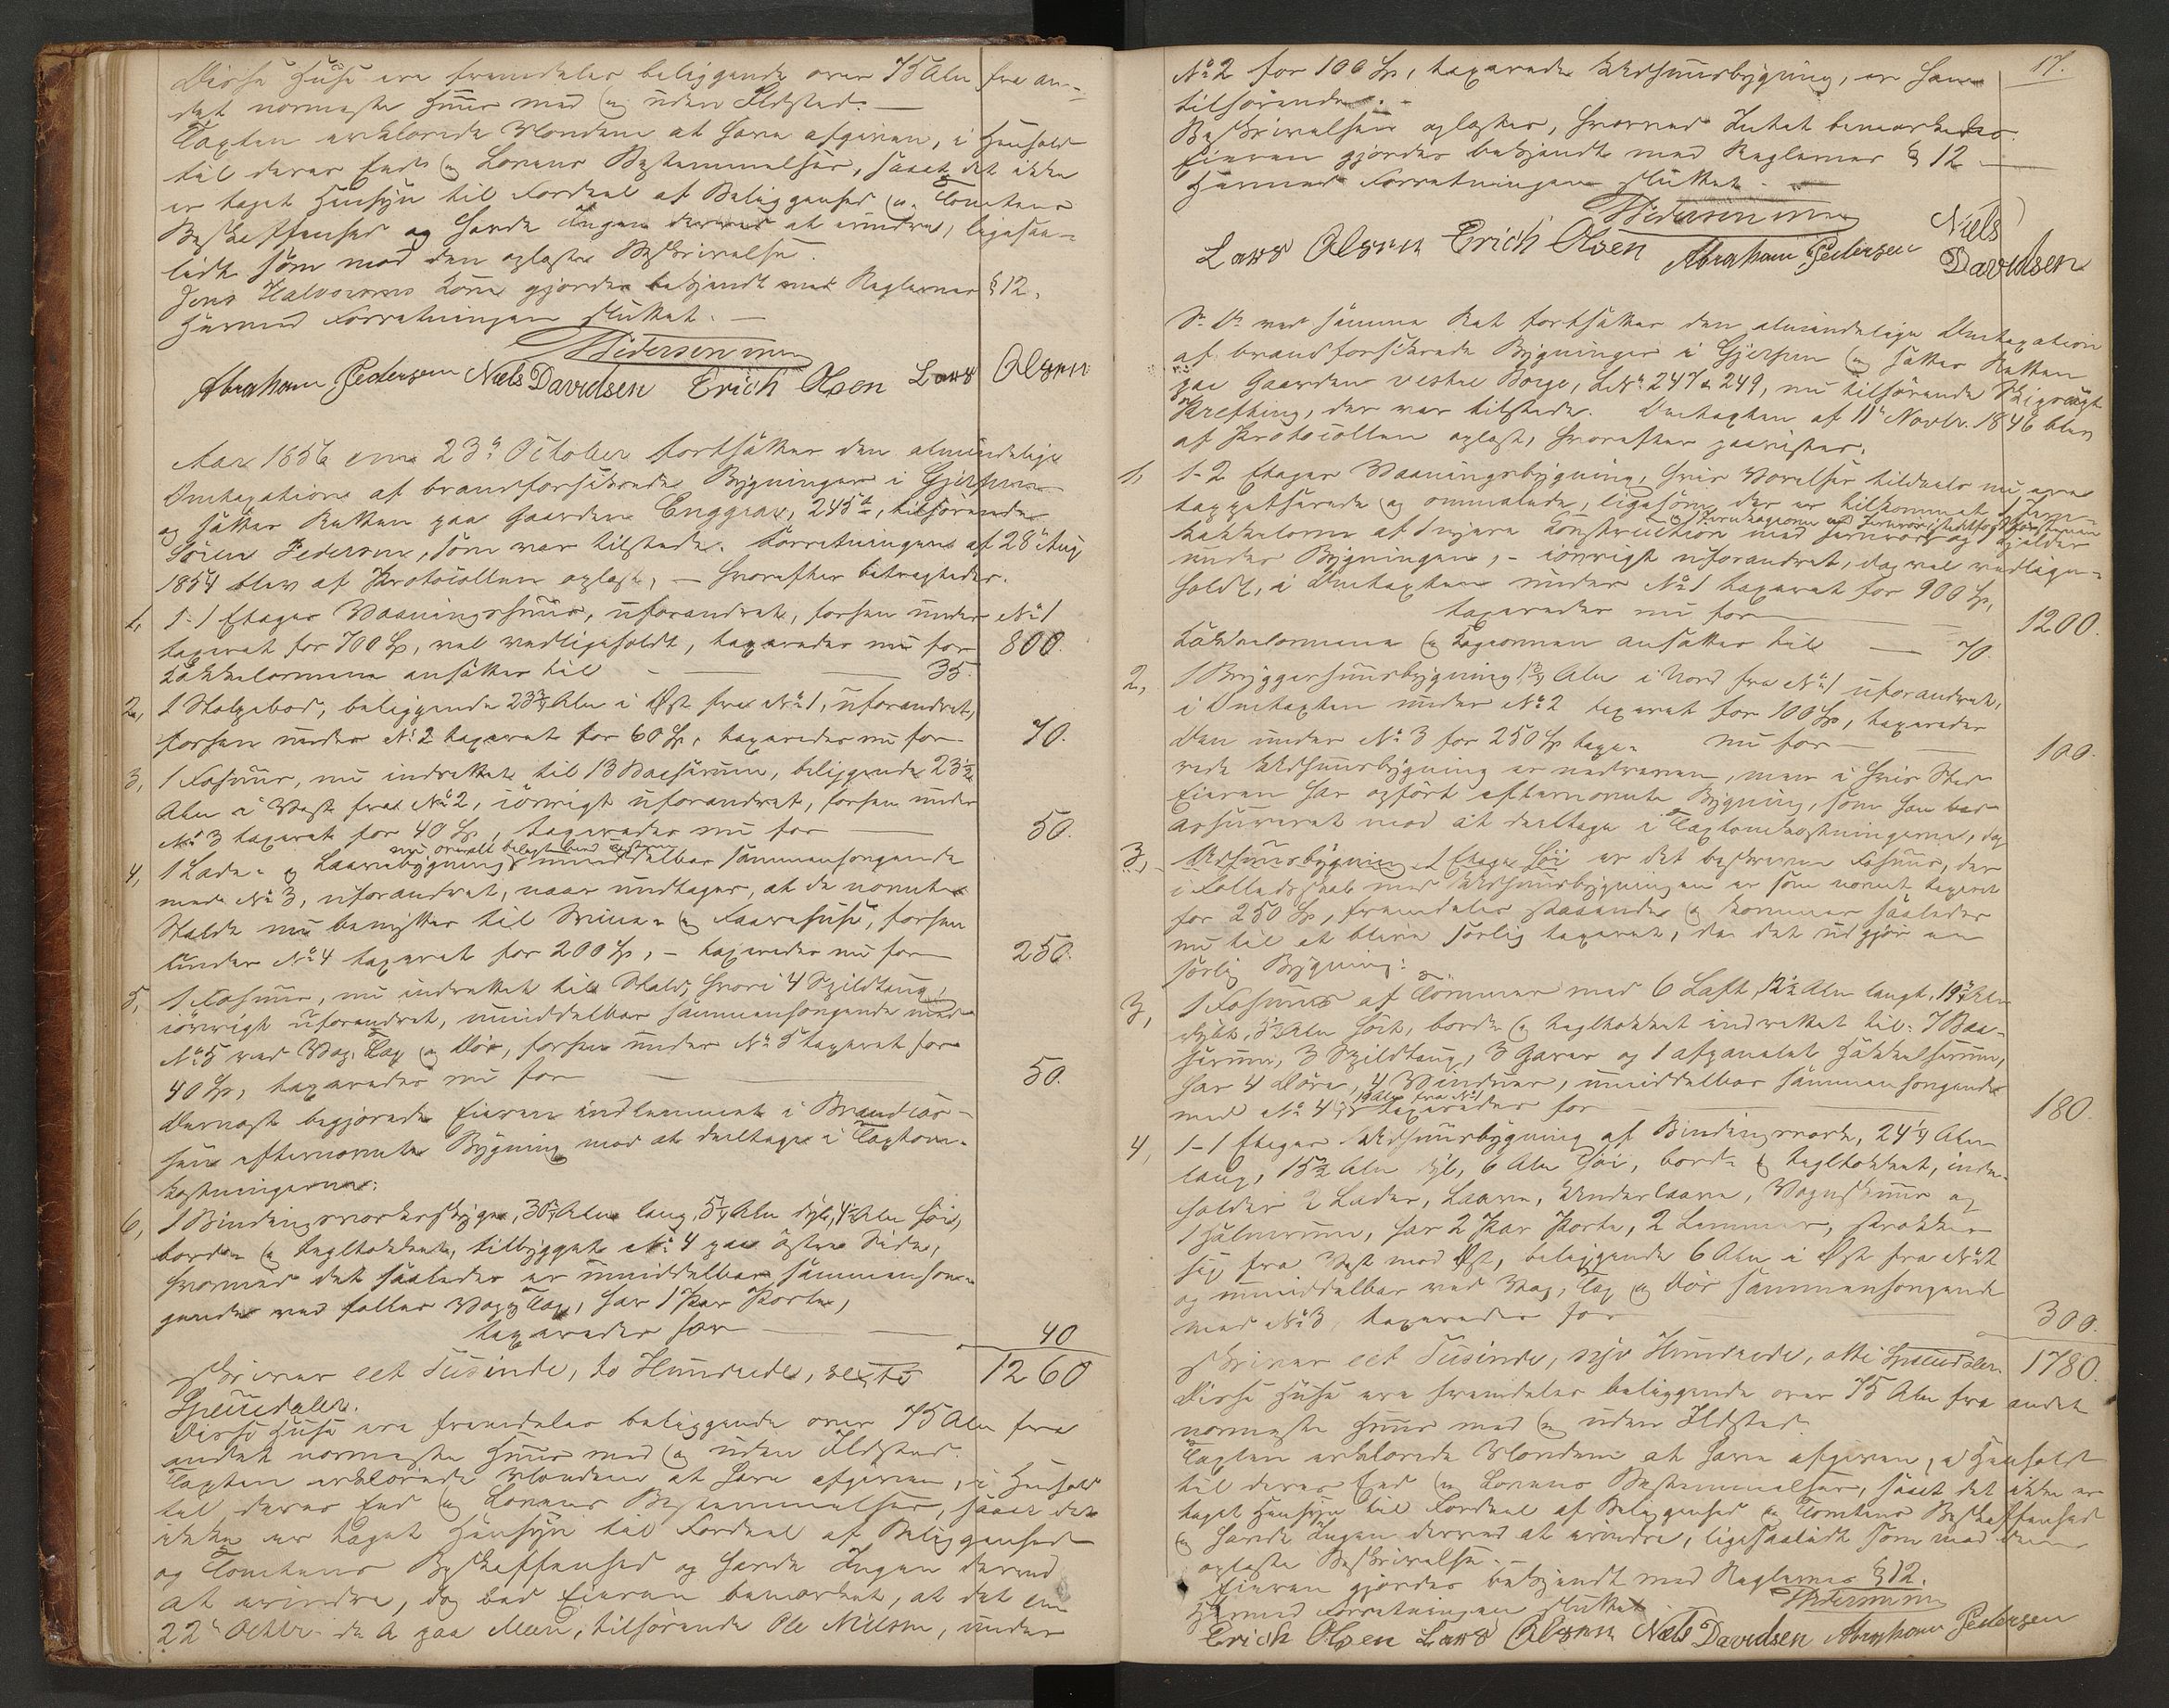 Disse Huse ere fremdeles beliggende over 75 Alen fra an-
det nærmeste Huus med og uden Ildsted. —
Taxten erklærede Mændene at have afgiven, i Henhold
til deres Eed og Lovens Bestemmelser, saaat det ikke
er taget Hensyn til Fordeel af Beliggenhed og Tomtens
Beskaffenhed og havde Ingen derved at erindre, ligesaa-
lidt som med den oplæste Beskrivelse.
Jens Halvorsens Kone gjordes bekjendt med Reglerne § 12.
Hermed Forretningen sluttet. —
Pedersen
Abraham Pedersen Niels Davidsen Erich Olsen Lars Olsen
Aar 1856 den 23de October fortsattes den almindelige
Omtaxation af brandforsikrede Bygninger i Gjerpen
og sattes Retten paa Gaarden Enggrav, 245a, tilhørende
Søren Pedersen, som var tilstede. Forretningen af 28de Aug
1854 blev af Protocollen oplæst, — hvorefter besigtedes.
1, 1-1 Etages Vaaningshuus, uforandret, forhen under No 1
taxeret for 700 Sp, vel vedligeholdt, taxeredes nu for 800.
Kakkelovnene ansattes til — 35.
2, 1 Stolpebod, beliggende 23 3/4 Alen i Øst fra No 1, uforandret,
forhen under No 2 taxeret for 60 Sp, taxeredes nu for 70.
3, 1 Fæhuus, nu indrettet til 13 Baaserum, beliggende 23 1/2
Alen i Vest fra No 2, iøvrigt uforandret, forhen under
No 3 taxeret for 40 Sp, taxeredes nu for — 50.
4, 1 Lade- og Laavebygning umiddelbar sammenhængende
med No 3, uforandret, naar undtages, at de nævnte
Stalde nu benyttes til Svine- og Faarehuse, forhen
under No 4 taxeret for 200 Sp, — taxeredes nu for 250.
5, 1 Fæhuus, nu indrettet til Stald, hvori 4 Spildtoug,
iøvrigt uforandret, umiddelbar sammenhængende med
No 5 ved Væg, Tag og Dør, forhen under No 5 taxeret for
40 Sp, taxeredes nu for — 50.
Dernæst begjærede Eieren indlemmet i Brandcas-
sen efternævnte Bygning mod at deeltage i Taxtom-
kostningerne:
6, 1 Bindingsværksskygge, 30 3/4 Alen lang, 5 3/4 Alen dyb, 4 1/2 Alen høi,
bord- og teglteækket, tilbygget No 4 paa østre Side,
hvormed det saaledes er umiddelbar sammenhæn-
gende ved fælles Væg og Tag, har 1 Par Porte,
taxeredes for — 40
skriver eet Tusinde, to Hundrede, sexti 1260
Speciedaler.
Disse Huse ere fremdeles beliggende over 75 Alen fra
andet nærmeste Huus med og uden Ildsted.
Taxten erklærede Mændene at have afgiven, i Henhold
til deres Eed og Lovens Bestemmelser, saaat det
ikke er taget Hensyn til Fordeel af Beliggenhed
og Tomtens Beskaffenhed og havde Ingen derved
at erindre, dog bad Eieren bemærket, at det den
22de Octbr. d. A. paa Meen, tilhørende Ole Nielsen, under
17.
No 2 for 100 Sp, taxerede Udhuusbygning, er ham
tilhørende. —
Beskrivelsen oplæstes, hvorved Intet bemærkedes.
Eieren gjordes bekjendt med Reglernes § 12 —
Hermed Forretningen sluttet. —
Pedersen
Lars Olsen Erich Olsen Abraham Pedersen Niels
Davidsen
S. D. ved samme Ret fortsattes den almindelige Omtaxation
af brandforsikrede Bygninger i Gjerpen og sattes Retten
paa Gaarden vestre Borge, LNo 247 & 249, nu tilhørende
Krefting, der var tilstede. Omtaxten af 11te Novbr. 1846 blev
af Protocollen oplæst, hvorefter paavistes.
1, 1-2 Etages Vaaningsbygning, hvis Værelser tildeels nu ere
tapetserede og ommalede, ligesom der er tilkommet
Kakkelovne af nyere Construction med Jernrør og Kjelder
under Bygningen, — iøvrigt uforandret, dog vel vedlige-
holdt, i Omtaxten under No 1 taxeret for 900 Sp,
taxeredes nu for — 1200.
Kakkelovnene og Bageovnen ansattes til — 70.
2, 1 Bryggerhuusbygning 13 Alen i Nord fra No 1 uforandret,
i Omtaxten under No 2 taxeret for 100 Sp, taxeredes
nu for — 100.
Den under No 3 for 250 Sp taxe-
rede Udhuusbygning er nedreven, men i hvis Sted
Eieren har opført efternævnte Bygning, som han bad
assureret mod at deeltage i Taxtomkostningerne, dog
3, Udhuusbygning 1 Etage høi er det beskrevne Fæhuus, der
i Fælledsskab med Udhuusbygningen er som nævnt taxeret
for 250 Sp, fremdeles staaende og kommer saaledes
nu til at blive særlig taxeret, da det udgjør en
særlig Bygning:
3, 1 Fæhuus af Tømmer med 6 Laft, 12 1/2 Alen langt, 19 3/4 Alen
dybt, 3 1/2 Alen høit, bord- og teglteækket indrettet til: 7 Baa-
serum, 3 Spildtoug, 3 Garer og 1 afpanelet Hakkelserum,
har 4 Døre, 4 Vinduer, umiddelbar sammenhængende
med No 4, 13 Alen fra No 1 taxeredes for — 180.
4, 1-1 Etages Udhuusbygning af Bindingsværk, 24 1/4 Alen
lang, 15 1/2 Alen dyb, 6 Alen høi, bord- og teglteækket, inde-
holder 2 Lader, Laave, Underlaave, Vognskuur og
1 Halmrum, har 2 Par Porte, 2 Lemmer, strækker
sig fra Vest mod Øst, beliggende 6 Alen i Øst fra No 2
og umiddelbar ved Væg, Tag og Dør sammenhængende
med No 3, taxeredes for — 300.
skriver eet Tusinde, syv Hundrede, otti Speciedaler 1780.
Disse Huse ere fremdeles beliggende over 75 Alen fra andet
nærmeste Huus med og uden Ildsted.
Taxten erklærede Mændene at have afgiven, i Henhold
til deres Eed og Lovens Bestemmelser, saaat det ikke er
taget Hensyn til Fordeel af Beliggenhed og Tomtens Beskaffenhed
og havde Ingen derved at erindre, ligesaalidt som med den
oplæste Beskrivelse.
Eieren gjordes bekjendt med Reglernes § 12.
Hermed Forretningen sluttet.
Pedersen
Erich Olsen Lars Olsen Niels Davidsen Abraham Pedersen